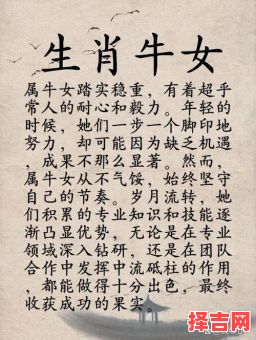 生肖牛女
属牛女踏实稳重，有着超乎
常人的耐心和毅力。年轻的
时候，她们一步一个脚印地
努力，却可能因为缺乏机遇
，成果不那么显著。然而，
属牛女从不气馁，始终坚守
自己的节奏。岁月流转，她
们积累的专业知识和技能逐
渐凸显优势，无论是在专业
领域深入钻研，还是在团队
合作中发挥中流砥柱的作用
，都能做得十分出色，最终
收获成功的果实。
择吉网